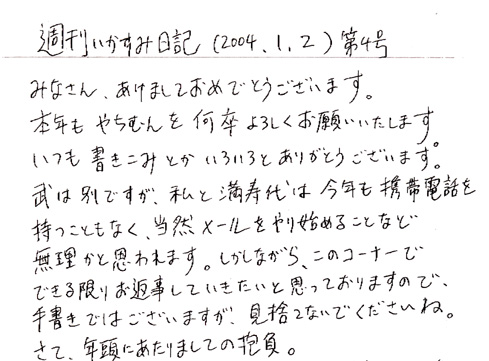 週刊いかすみ日記 (2004.1.2) 第4号
みなさん、あけましておめでとうございます。
本年も やちむんを 何卒 よろしくお願いいたします。
いつも 書きこみとか いろいろと ありがとうございます。
武は 別ですが、私と 満寿代は 今年も 携帯電話を
持つこともなく、当然 メールを やり始めることなど
無理かと思われます。しかしながら、このコーナーで
できる限り お返事していきたいと思っておりますので、
手書きではございますが、見捨てないでくださいね。
さて、年頭にあたりましての抱負。